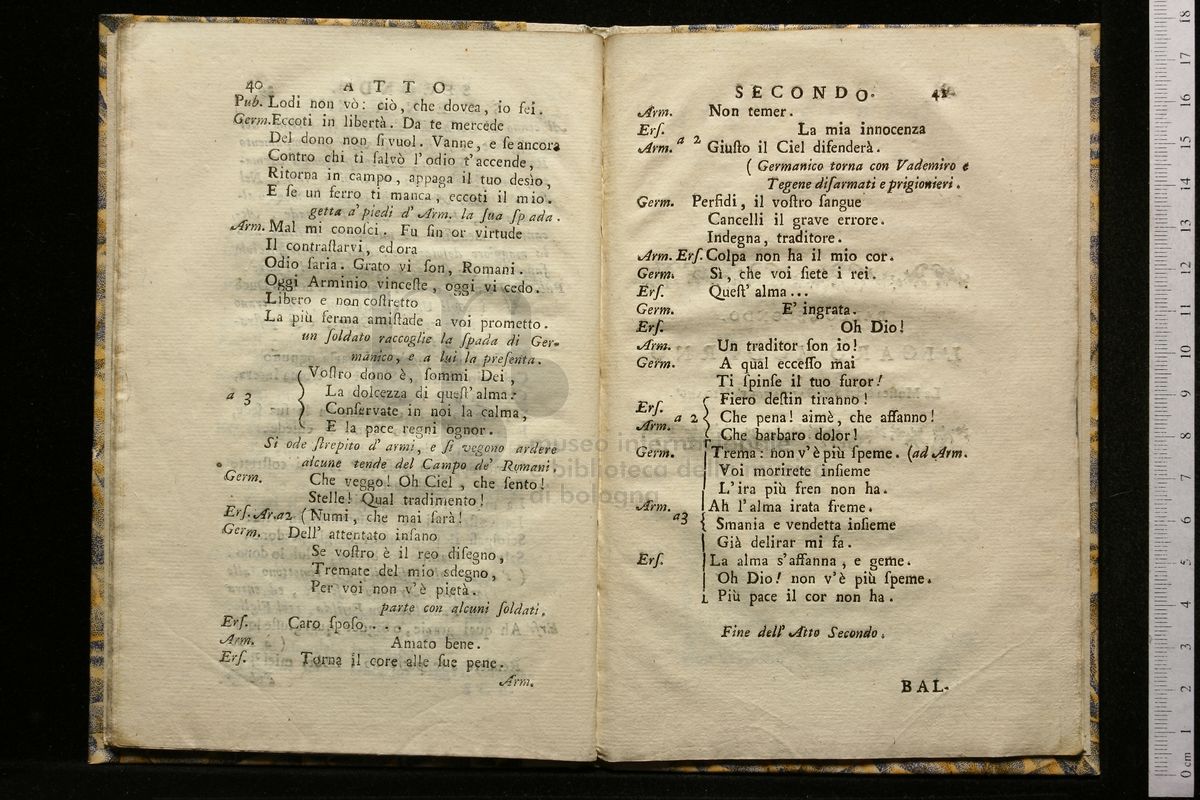 40 ATTO
Pub. Lodi non vò: ciò, che dovea, io fei.
Germ. Eccoti in libertà. Da te mercede
Del dono non si vuol. Vanne, e se ancora
Contro chi ti salvò l'odio t'accende,
Ritorna in campo, appaga il tuo desìo,
E se un ferro ti manca, eccoti il mio.
getta a' piedi d' Arm. la sua spada.
Arm. Mal mi conosci. Fu sin or virtude
Il contrastarvi, ed ora
Odio saria. Grato vi son, Romani.
Oggi Arminio vinceste, oggi vi cedo.
Libero e non costretto
La più ferma amistade a voi prometto.
un soldato raccoglie la spada di Ger-
manico, e a lui la presenta.
Vostro dono è, sommi Dei,
a 3 La dolcezza di quest' alma:
Conservate in noi la calma,
E la pace regni ognor.
Si ode strepito d' armi, e si vegono ardere
alcune tende del Campo de' Romani.
Germ. Che veggo! Oh Ciel, che sento!
Stelle! Qual tradimento!
Ers. Ar. a2 (Numi, che mai sarà!
Germ. Dell' attentato insano
Se vostro è il reo disegno,
Tremate del mio sdegno,
Per voi non v'è pietà.
parte con alcuni soldati.
Ers. Caro sposo...
Arm. Amato bene.
Ers. Torna il core alle sue pene.
Arm.
SECONDO. 41
Arm. Non temer.
Ers. La mia innocenza
Arm. a 2 Giusto il Ciel difenderà.
( Germanico torna con Vademiro e
Tegene disarmati e prigionieri.
Germ. Perfidi, il vostro sangue
Cancelli il grave errore.
Indegna, traditore.
Arm. Ers. Colpa non ha il mio cor.
Germ. Sì, che voi siete i rei.
Ers. Quest' alma...
Germ. E' ingrata.
Ers. Oh Dio!
Arm. Un traditor son io!
Germ. A qual eccesso mai
Ti spinse il tuo furor!
Fiero destin tiranno!
Ers. Arm. a 2 Che pena! aimè, che affanno!
Che barbaro dolor!
Germ. Trema: non v'è più speme. (ad Arm.
Voi morirete insieme
L'ira più fren non ha.
Arm. Ah l'alma irata freme.
a3 Smania e vendetta insieme
Già delirar mi fa.
Ers. La alma s'affanna, e geme.
Oh Dio! non v'è più speme.
Più pace il cor non ha.
Fine dell' Atto Secondo.
BAL-
museo internazionale
biblioteca della musica
di bologna
0 cm 1 2 3 4 5 6 7 8 9 10 11 12 13 14 15 16 17 18